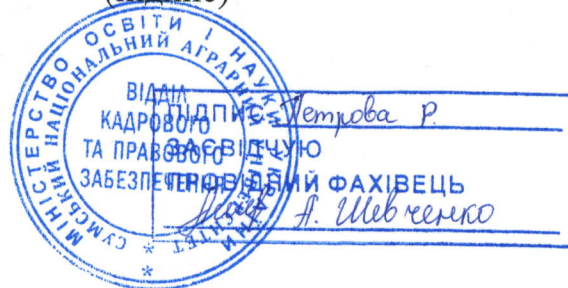 (підпис)
МІНІСТЕРСТВО ОСВІТИ І НАУКИ УКРАЇНИ
СУМСЬКИЙ НАЦІОНАЛЬНИЙ АГРАРНИЙ УНІВЕРСИТЕТ
ВІДДІЛ
КАДРОВОГО
ТА ПРАВОВОГО
ЗАБЕЗПЕЧЕННЯ
ПІДПИС Петрова Р.
ЗАСВІДЧУЮ
ПРОВІДНИЙ ФАХІВЕЦЬ
А. Шевченко